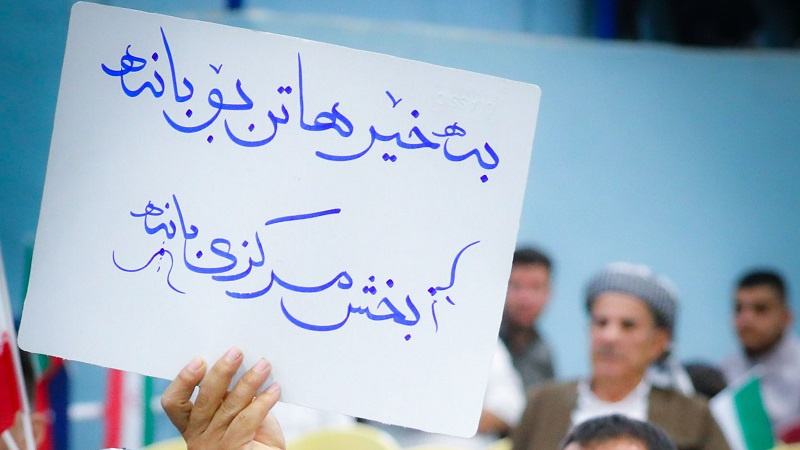 بەخێرهاتن بۆ بانە
بخش مرکزی بانه